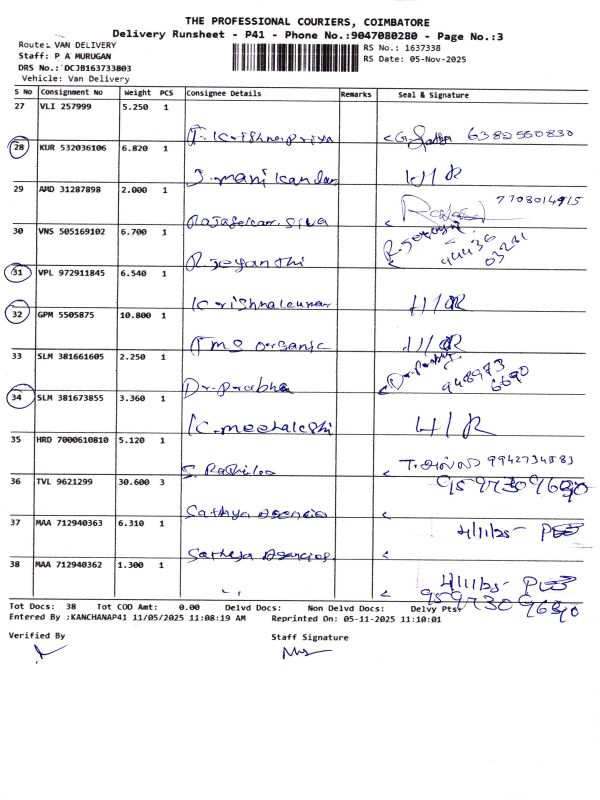 THE PROFESSIONAL COURIERS, COIMBATORE
Delivery Runsheet - P41 - Phone No.:9047080280 - Page No.:3
Route: VAN DELIVERY
RS No.: 1637338
Staff: P A MURUGAN
RS Date: 05-Nov-2025
DRS No.: DCJB163733803
Vehicle: Van Delivery
S No Consignment No Weight PCS Consignee Details Remarks Seal & Signature
27 VLI 257999 5.250 1
T. Krishnapriya 6382550830
28 KUR 532036106 6.820 1
J. manikandan H/R
29 AMD 31287898 2.000 1
Rajasekar. Siva 7708014915
30 VNS 505169102 6.700 1
R. Jeyanthi R. Jeyanthi 94436 03281
31 VPL 972911845 6.540 1
Krishnakumar H/R
32 GPM 5505875 10.800 1
TMS organic H/R
33 SLM 381661605 2.250 1
Dr. Prabha Dr. Prabha 948973 6690
34 SLM 381673855 3.360 1
K. meenakshi H/R
35 HRD 7000610810 5.120 1
S. 9942734583
36 TVL 9621299 30.600 3
Sathya Agencies 9597309690
37 MAA 712940363 6.310 1
Sathya Agencies 4/11/25-
38 MAA 712940362 1.300 1
" 4/11/25-
9597309690
Tot Docs: 38 Tot COD Amt: 0.00 Delvd Docs: Non Delvd Docs: Delvy Pts:
Entered By :KANCHANAP41 11/05/2025 11:08:19 AM Reprinted On: 05-11-2025 11:10:01
Verified By Staff Signature